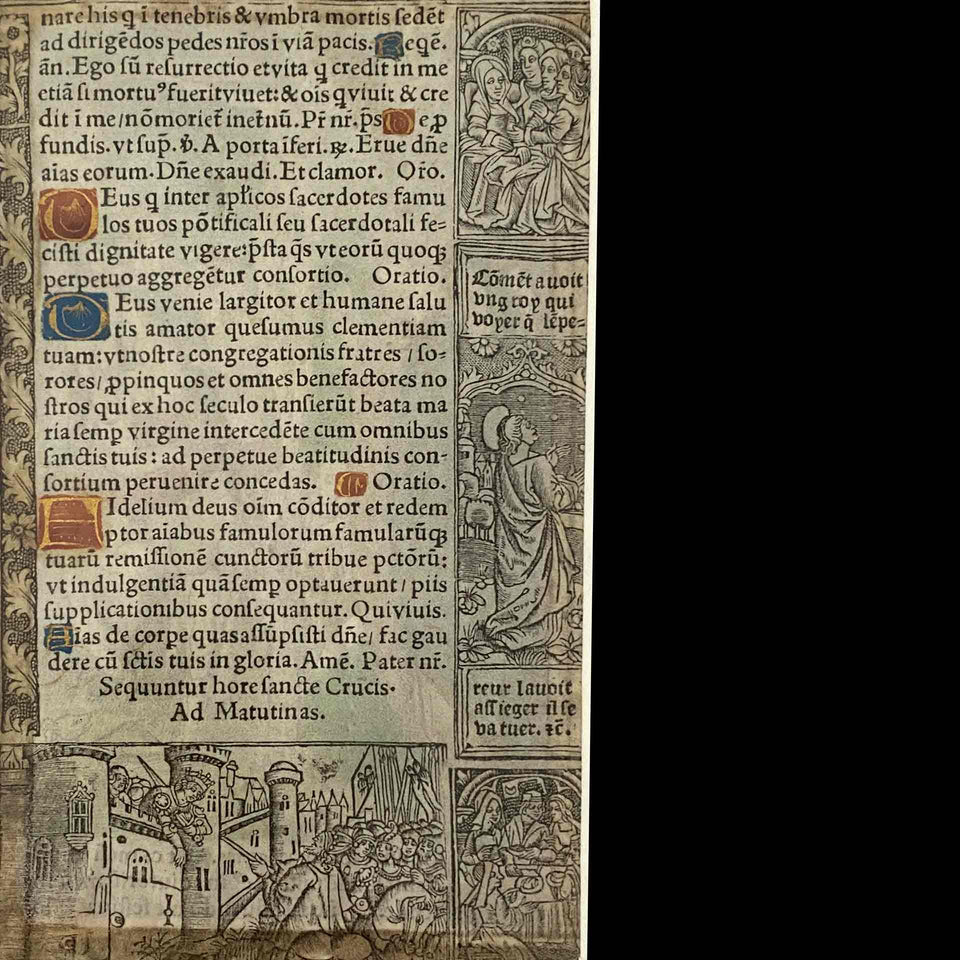 nare his q̃ ĩ tenebris & vmbra mortis ſedẽt
ad dirigẽdos pedes nr̃os ĩ viã pacis. Reqẽ.
ãn. Ego ſũ reſurrectio et vita q̃ credit in me
etiã ſi mortu⁹ fuerit viuet: & oĩs q viuit & cre
dit ĩ me / nõ morieť in etnũ. Pr̃ nr̃. p̃s D e ꝓ
fundis. vt ſup̃. ℣. A porta ĩferi. ℟. Erue dñe
aĩas eorum. Dñe exaudi. Et clamor. Oro.
DEus q̃ inter apľicos ſacerdotes famu
los tuos põtificali ſeu ſacerdotali fe=
ciſti dignitate vigere: p̃ſta q̃s vt eorũ quoqꝫ
perpetuo aggregẽtur conſortio. Oratio.
DEus venie largitor et humane ſalu
tis amator queſumus clementiam
tuam: vt noſtre congregationis fratres / ſo-
rores / ꝓpinquos et omnes benefactores no
ſtros qui ex hoc ſeculo tranſierũt beata ma
ria ſemꝑ virgine intercedẽte cum omnibus
ſanctis tuis: ad perpetue beatitudinis con-
ſortium peruenire concedas. Oratio.
FIdelium deus oĩm cõditor et redem
ptor aĩabus famulorum famularũqꝫ
tuarũ remiſſionẽ cunctorũ tribue pctõrũ:
vt indulgentiã quã ſemꝑ optauerunt / piis
ſupplicationibus conſequantur. Qui viuis.
ias de corpe quas aſſũpſiſti dñe / fac gau
dere cũ ſctĩs tuis in gloria. Amẽ. Pater nr̃.
Sequuntur hore ſancte Crucis.
Ad Matutinas.
Cõmẽt auoit
vng roy qui
voyer q̃ lepe=
reur lauoit
aſſieger il ſe
va tuer. ⁊c̃.